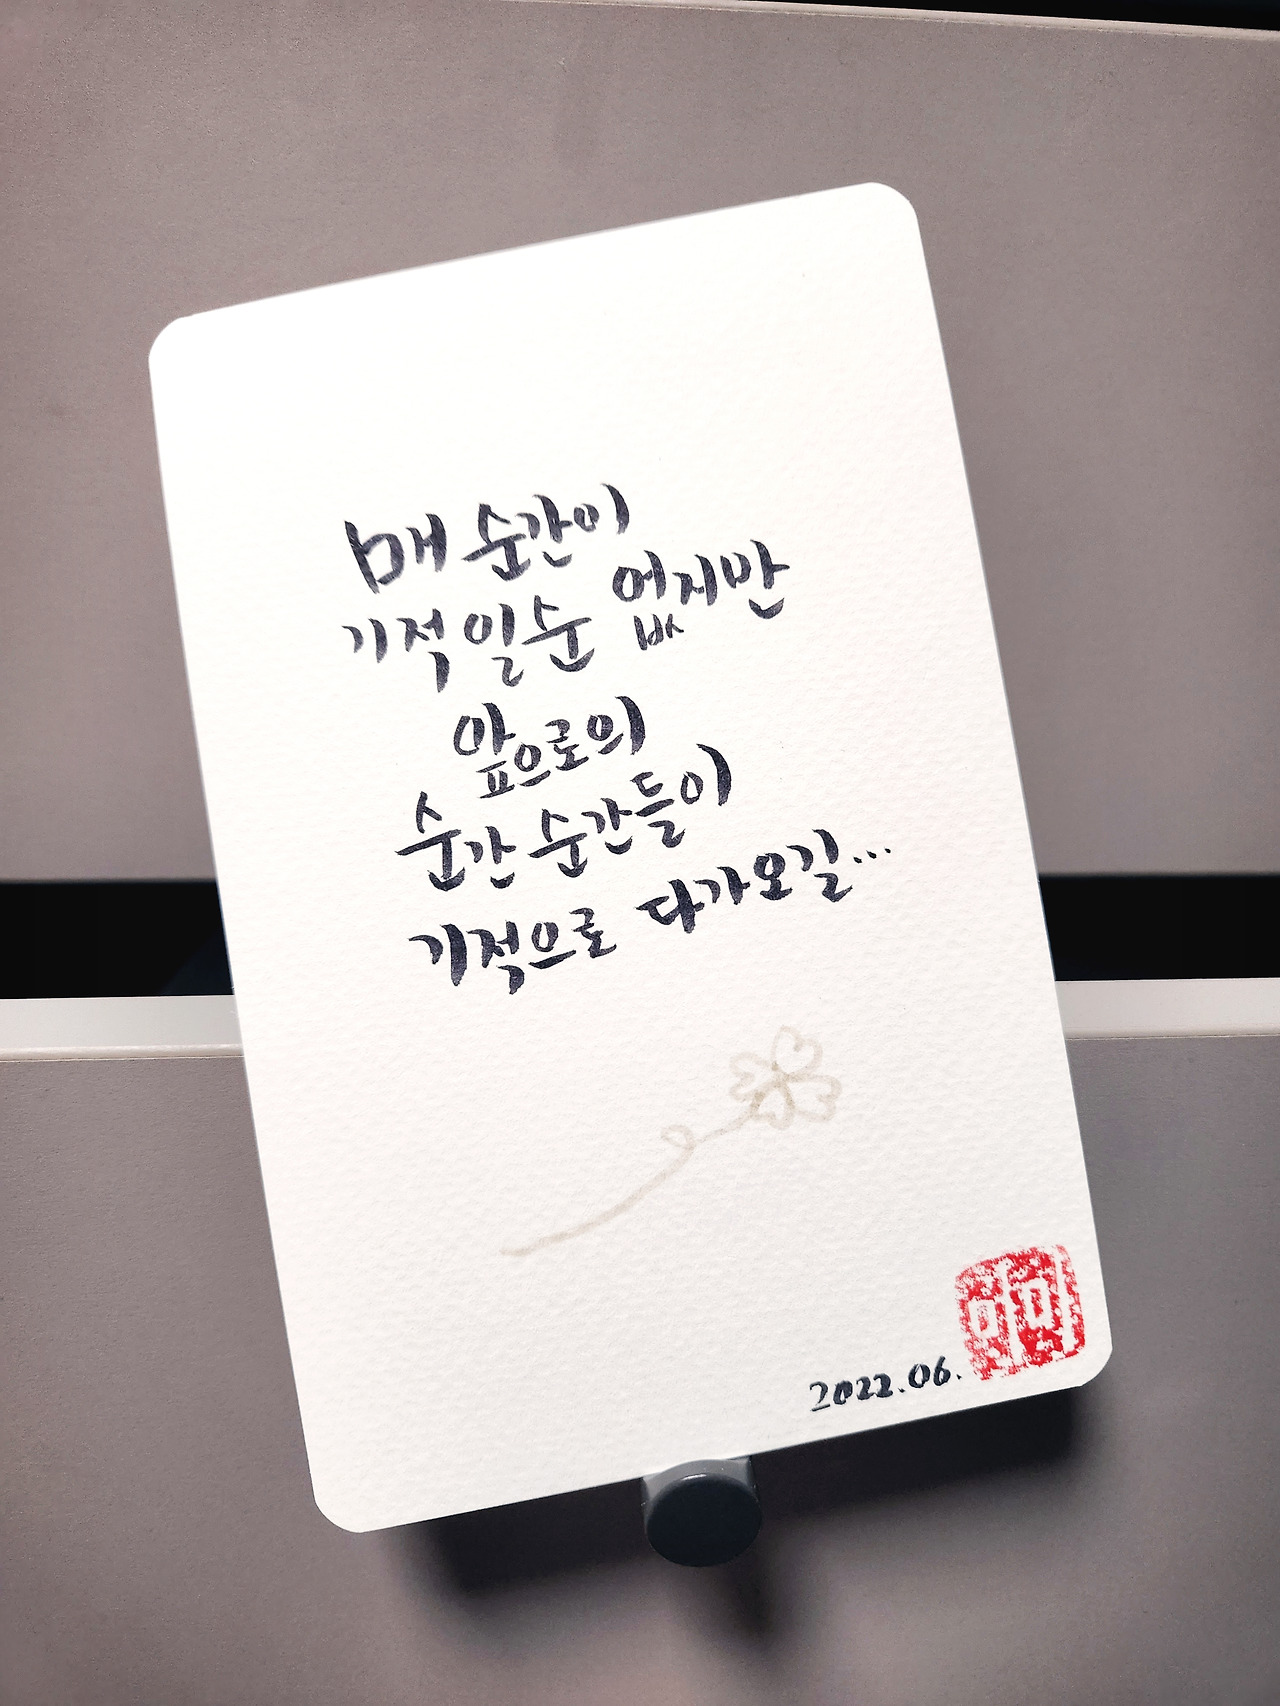 매 순간이
기적 일순 없지만
앞으로의
순간 순간들이
기적으로 다가오길...
2022.06.